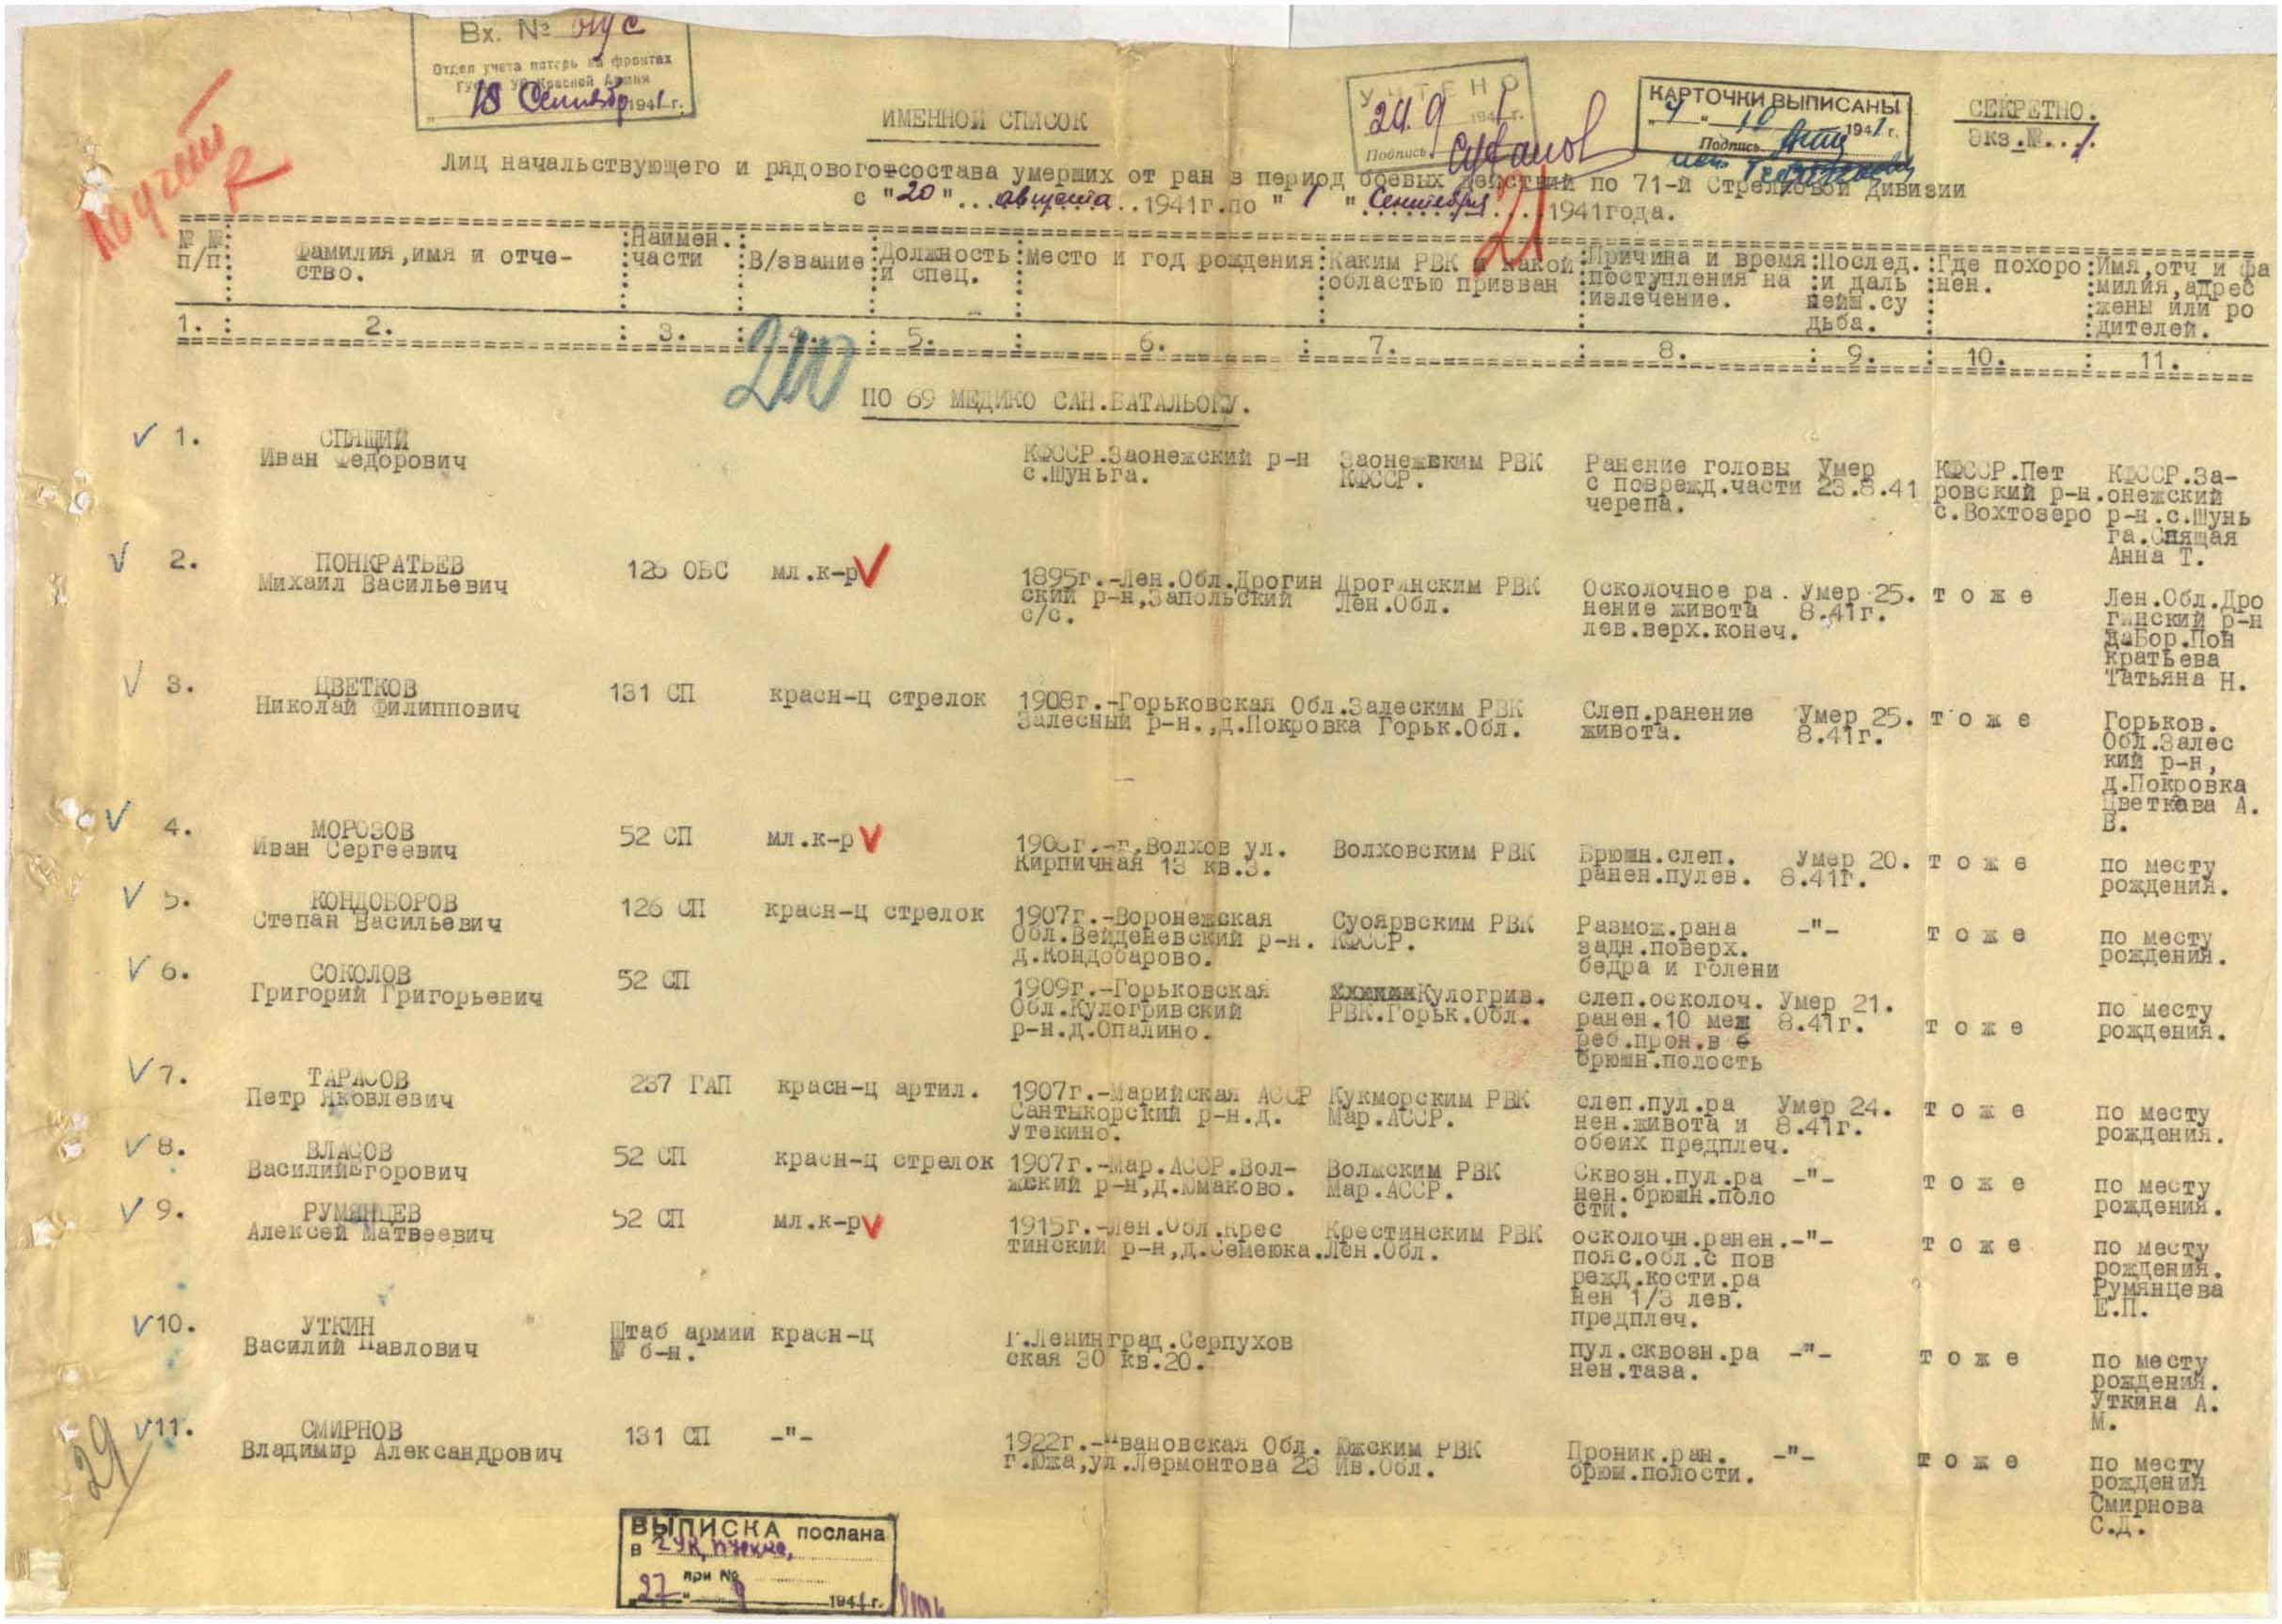 Вх. №
Отдел учета потерь на фронтах
Красной Армии
18 Сентябр 1941 г.
УЧТЕНО
24. 9 1941 г.
Подпись
КАРТОЧКИ ВЫПИСАНЫ
"4" 10 1941 г.
Подпись
СЕКРЕТНО.
Экз.№..1.
ИМЕННОЙ СПИСОК
Лиц начальствующего и рядового состава умерших от ран в период боевых действий по 71-й Стрелковой Дивизии
с "20"... августа ..1941г.по " 1 " Сентября ....1941года.
21
№ №: п/п:
Фамилия,имя и отче-
ство.
:Наимен.:
:части
В/звание
:Должность
:и спец.
:место и год рождения
:Каким РВК и какой
:областью призван
:Причина и время
:поступления на
:излечение.
:Послед.
:и даль
нейш.су
дьба.
:Где похоро
:нен.
:Имя,отч и фа
:милия,адрес
:жены или ро
:дителей.
1. : 2. : 3. : 4. : 5. : 6. : 7. : 8. : 9. : 10. : 11.
200
ПО 69 МЕДИКО САН.БАТАЛЬОНУ.
1. СПЯЩИЙ
Иван Федорович
КФССР.Заонежский р-н
с.Шуньга.
Заонежским РВК
КФССР.
Ранение головы
с поврежд.части
черепа.
Умер
23.8.41
КФССР.Пет
ровский р-н.
с.Вохтозеро
КФССР.За-
онежский
р-н.с.Шунь
га.Спящая
Анна Т.
2. ПОНКРАТЬЕВ
Михаил Васильевич
126 ОБС
мл.к-р
1895г.-Лен.Обл.Дрогин
ский р-н,Запольский
с/с.
Дрогинским РВК
Лен.Обл.
Осколочное ра.
нение живота
лев.верх.конеч.
Умер 25.
8.41г.
т о ж е
Лен.Обл.Дро
гинский р-н
даБор.Пон
кратьева
Татьяна Н.
3. ЦВЕТКОВ
Николай Филиппович
131 СП
красн-ц стрелок
1908г.-Горьковская Обл.Залеским РВК
Залесный р-н.,д.Покровка Горьк.Обл.
Слеп.ранение
живота.
Умер 25.
8.41г.
т о ж е
Горьков.
Обл.Залес
кий р-н,
д.Покровка
Цветкава А.
В.
4. МОРОЗОВ
Иван Сергеевич
52 СП
мл.к-р
г.Волхов ул.
Кирпичная 13 кв.3.
Волховским РВК
Брюшн.слеп.
ранен.пулев.
Умер 20.
8.41г.
т о ж е
по месту
рождения.
5. КОНДОБОРОВ
Степан Васильевич
126 СП
красн-ц стрелок
1907г.-Воронежская
Обл.Вейденевский р-н.
д.Кондобарово.
Суоярвским РВК
КФССР.
Размож.рана
задн.поверх.
бедра и голени
-"-
т о ж е
по месту
рождения.
6. СОКОЛОВ
Григорий Григорьевич
52 СП
1909г.-Горьковская
Обл.Кулогривский
р-н.д.Опалино.
Кулогрив.
РВК.Горьк.Обл.
слеп.осколоч.
ранен.10 меж
реб.прон.в
брюшн.полость
Умер 21.
8.41г.
т о ж е
по месту
рождения.
7. ТАРАСОВ
Петр Яковлевич
237 ГАП
красн-ц артил.
1907г.-Марийская АССР
Сантыкорский р-н.д.
Утекино.
Кукморским РВК
Мар.АССР.
слеп.пул.ра
нен.живота и
обеих предплеч.
Умер 24.
8.41г.
т о ж е
по месту
рождения.
8. ВЛАСОВ
Василий Егорович
52 СП
красн-ц стрелок
1907г.-Мар.АССР.Вол-
жский р-н,д.Юмаково.
Волжским РВК
Мар.АССР.
Сквозн.пул.ра
нен.брюшн.поло
сти.
-"-
т о ж е
по месту
рождения.
9. РУМЯНЦЕВ
Алексей Матвеевич
52 СП
мл.к-р
1915г.-Лен.Обл.Крес
тинский р-н,д.Семеюка.
Крестинским РВК
Лен.Обл.
осколочн.ранен.
пояс.обл.с пов
режд.кости.ра
нен 1/3 лев.
предплеч.
-"-
т о ж е
по месту
рождения.
Румянцева
Е.П.
10. УТКИН
Василий Павлович
Штаб армии
№ б-н.
красн-ц
г.Ленинград.Серпухов
ская 30 кв.20.
пул.сквозн.ра
нен.таза.
-"-
т о ж е
по месту
рождения.
Уткина А.
М.
11. СМИРНОВ
Владимир Александрович
131 СП
-"-
1922г.-Ивановская Обл.
г.Южа,ул.Лермонтова 23
Южским РВК
Ив.Обл.
Проник.ран.
брюш.полости.
-"-
т о ж е
по месту
рождения
Смирнова
С.Д.
29
ВЫПИСКА послана
в
при №
"27" 9 1941 г.